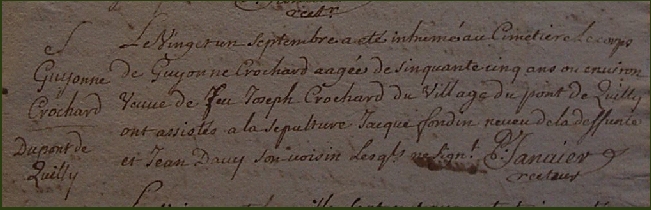 rectr.
S
Guyonne
Crochard
Dupont de
Quilly
Le Vingt un Septembre a eté inhumé au Cimetiere le corps
de Guyonne Crochard aagées de sinquante cinq ans ou environ
Veuve de feu Joseph Crochard du Village du pont de Quilly
ont assistés a la sepulture Jacque fondin neveu de la deffunte
et Jean Davy son voisin Lesqls ne signt. P. Janvier
recteur